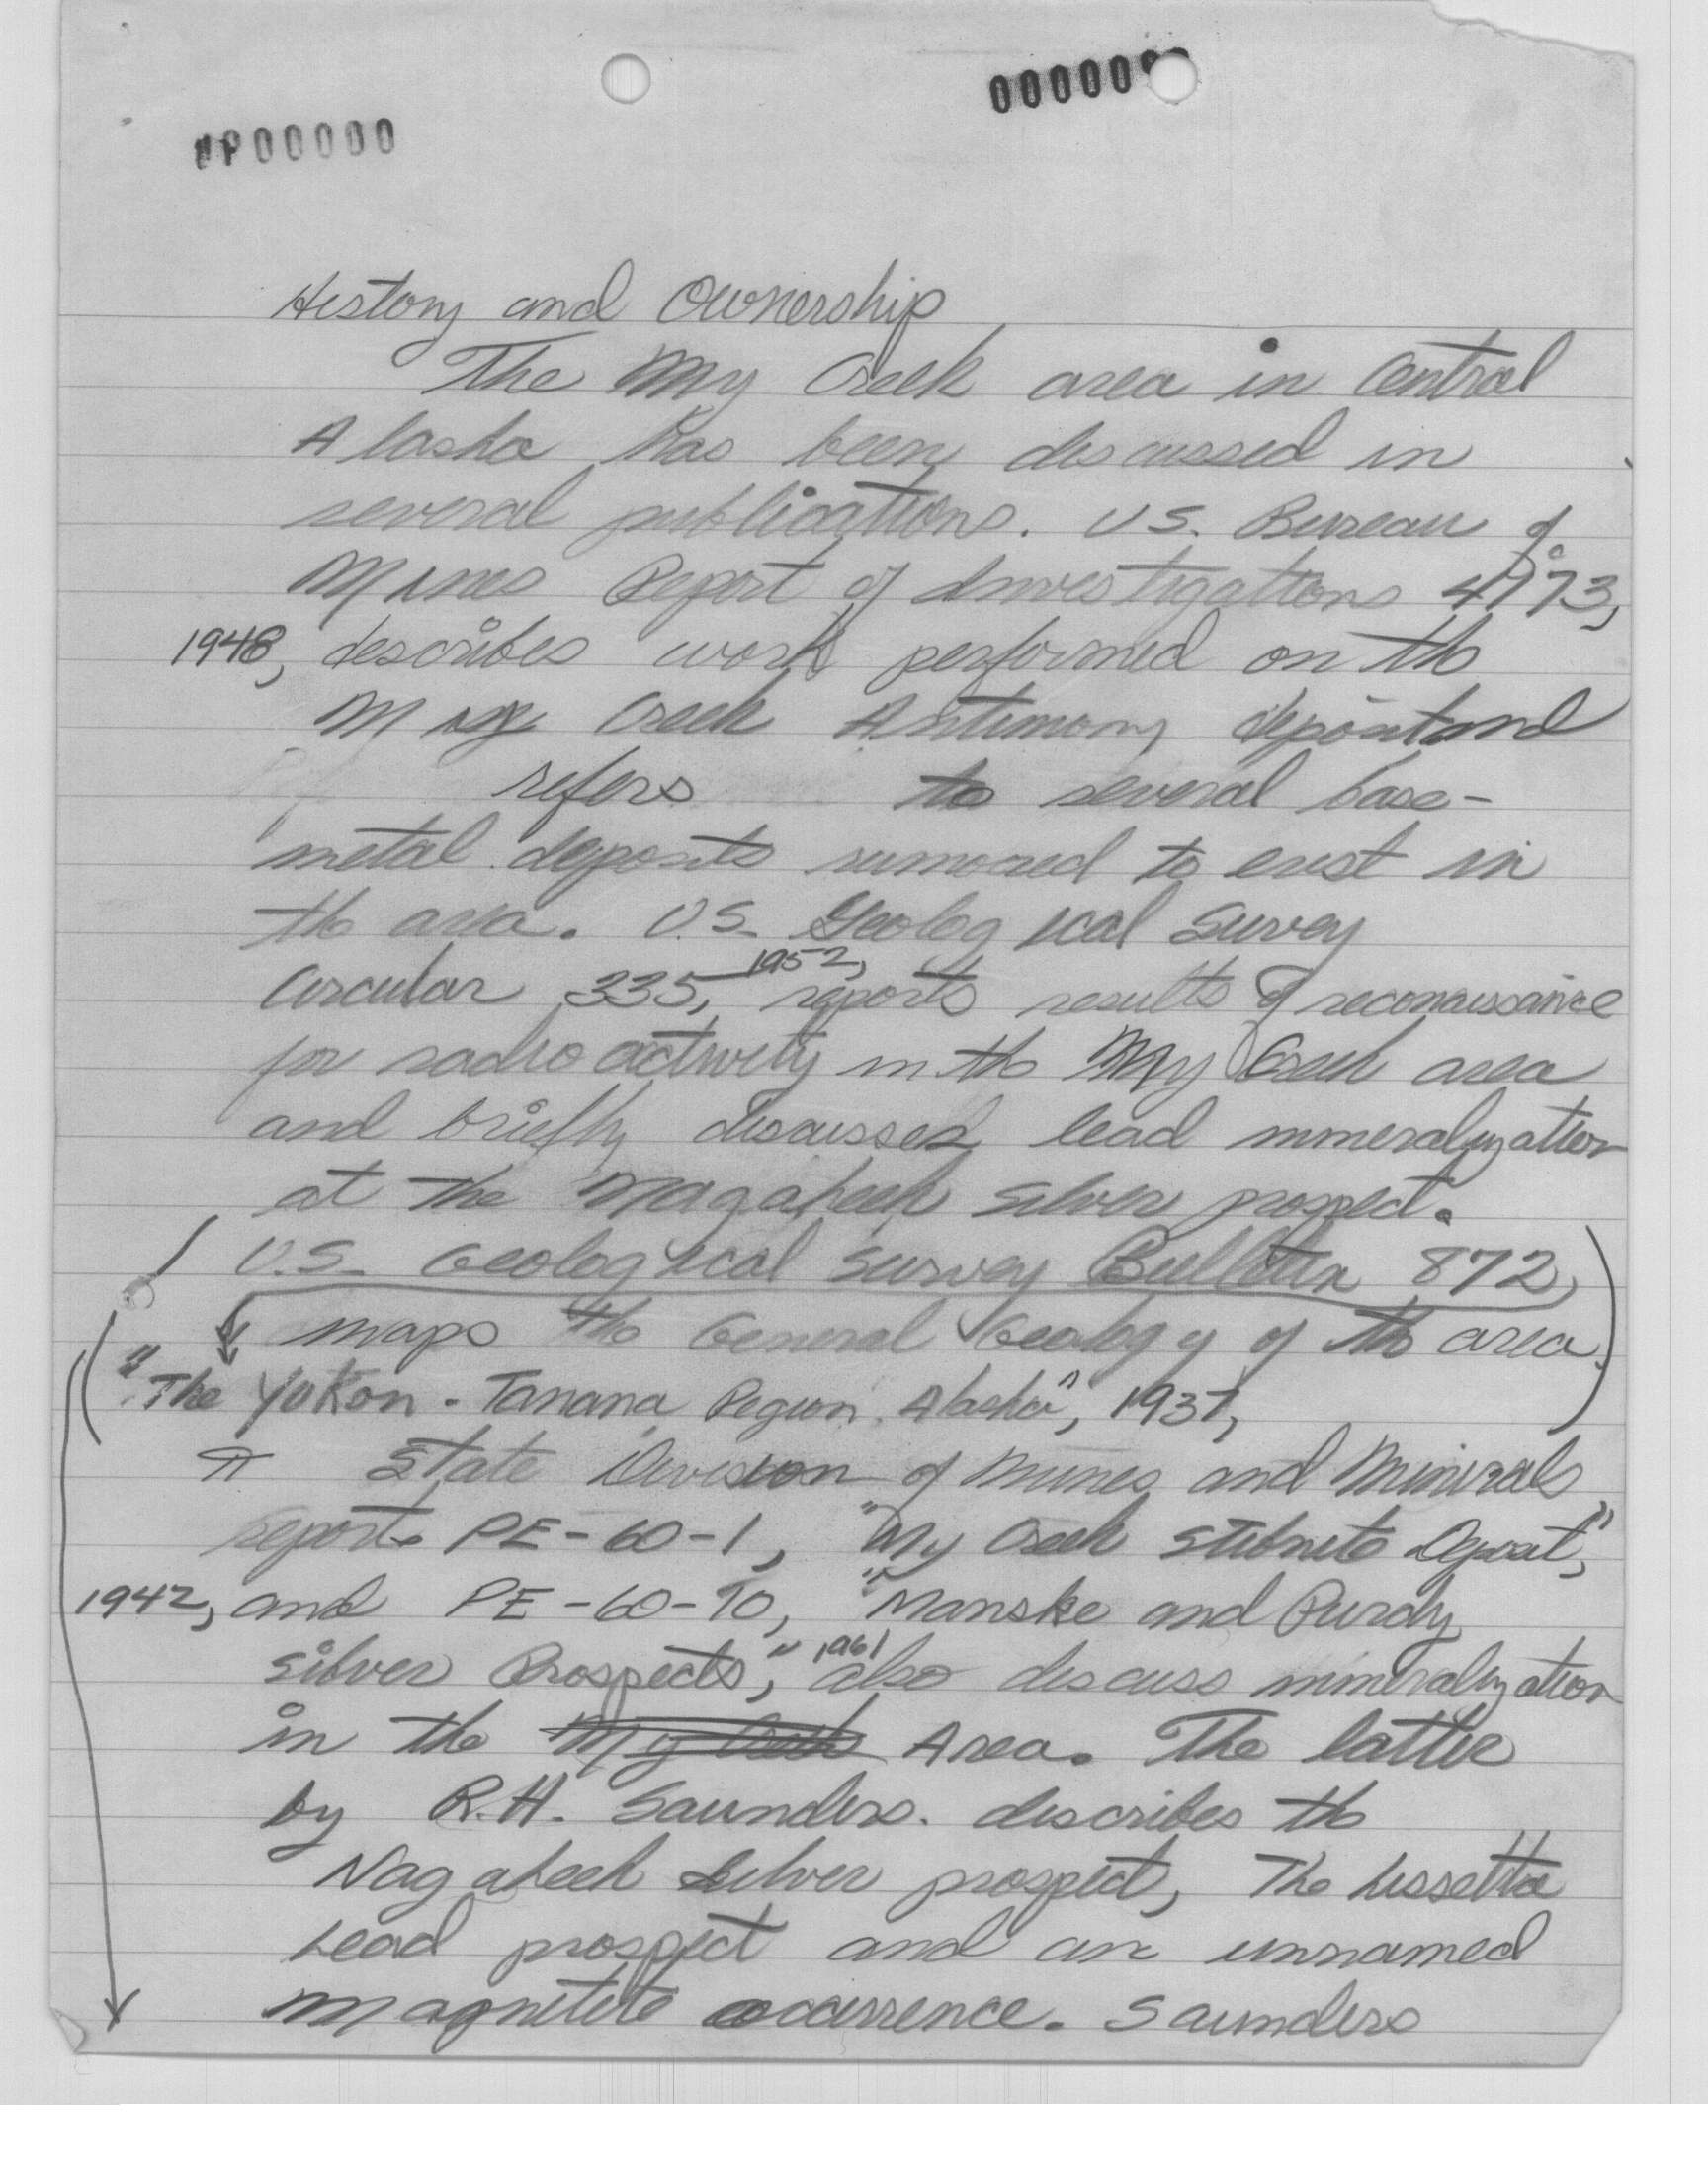 000000
000000
History and Ownership
The My Creek area in Central
Alaska has been discussed in
several publications. U.S. Bureau of
Mines Report of Investigations 4173,
1948, describes work performed on the
My Creek Antimony deposit and
refers to several base-
metal deposits rumored to exist in
the area. U.S. Geological Survey
Circular 335, 1952, reports results of reconaissance
for radioactivity in the My Creek area
and briefly discusses lead mineralization
at the Nagaheek Silver prospect.
( U.S. Geological Survey Bulletin 872,
maps the General Geology of the area. )
"The Yukon-Tanana Region, Alaska", 1937,
State Division of Mines and Minerals
reports PE-60-1, "My Creek Stibnite Deposit,"
1942, and PE-60-10, "Manske and Purdy
Silver Prospects," 1961 also discuss mineralization
in the My Creek Area. The latter
by R.H. Saunders. describes the
Nagaheek Silver prospect, The Lissetta
Lead prospect and an unnamed
magnetite occurrence. Saunders